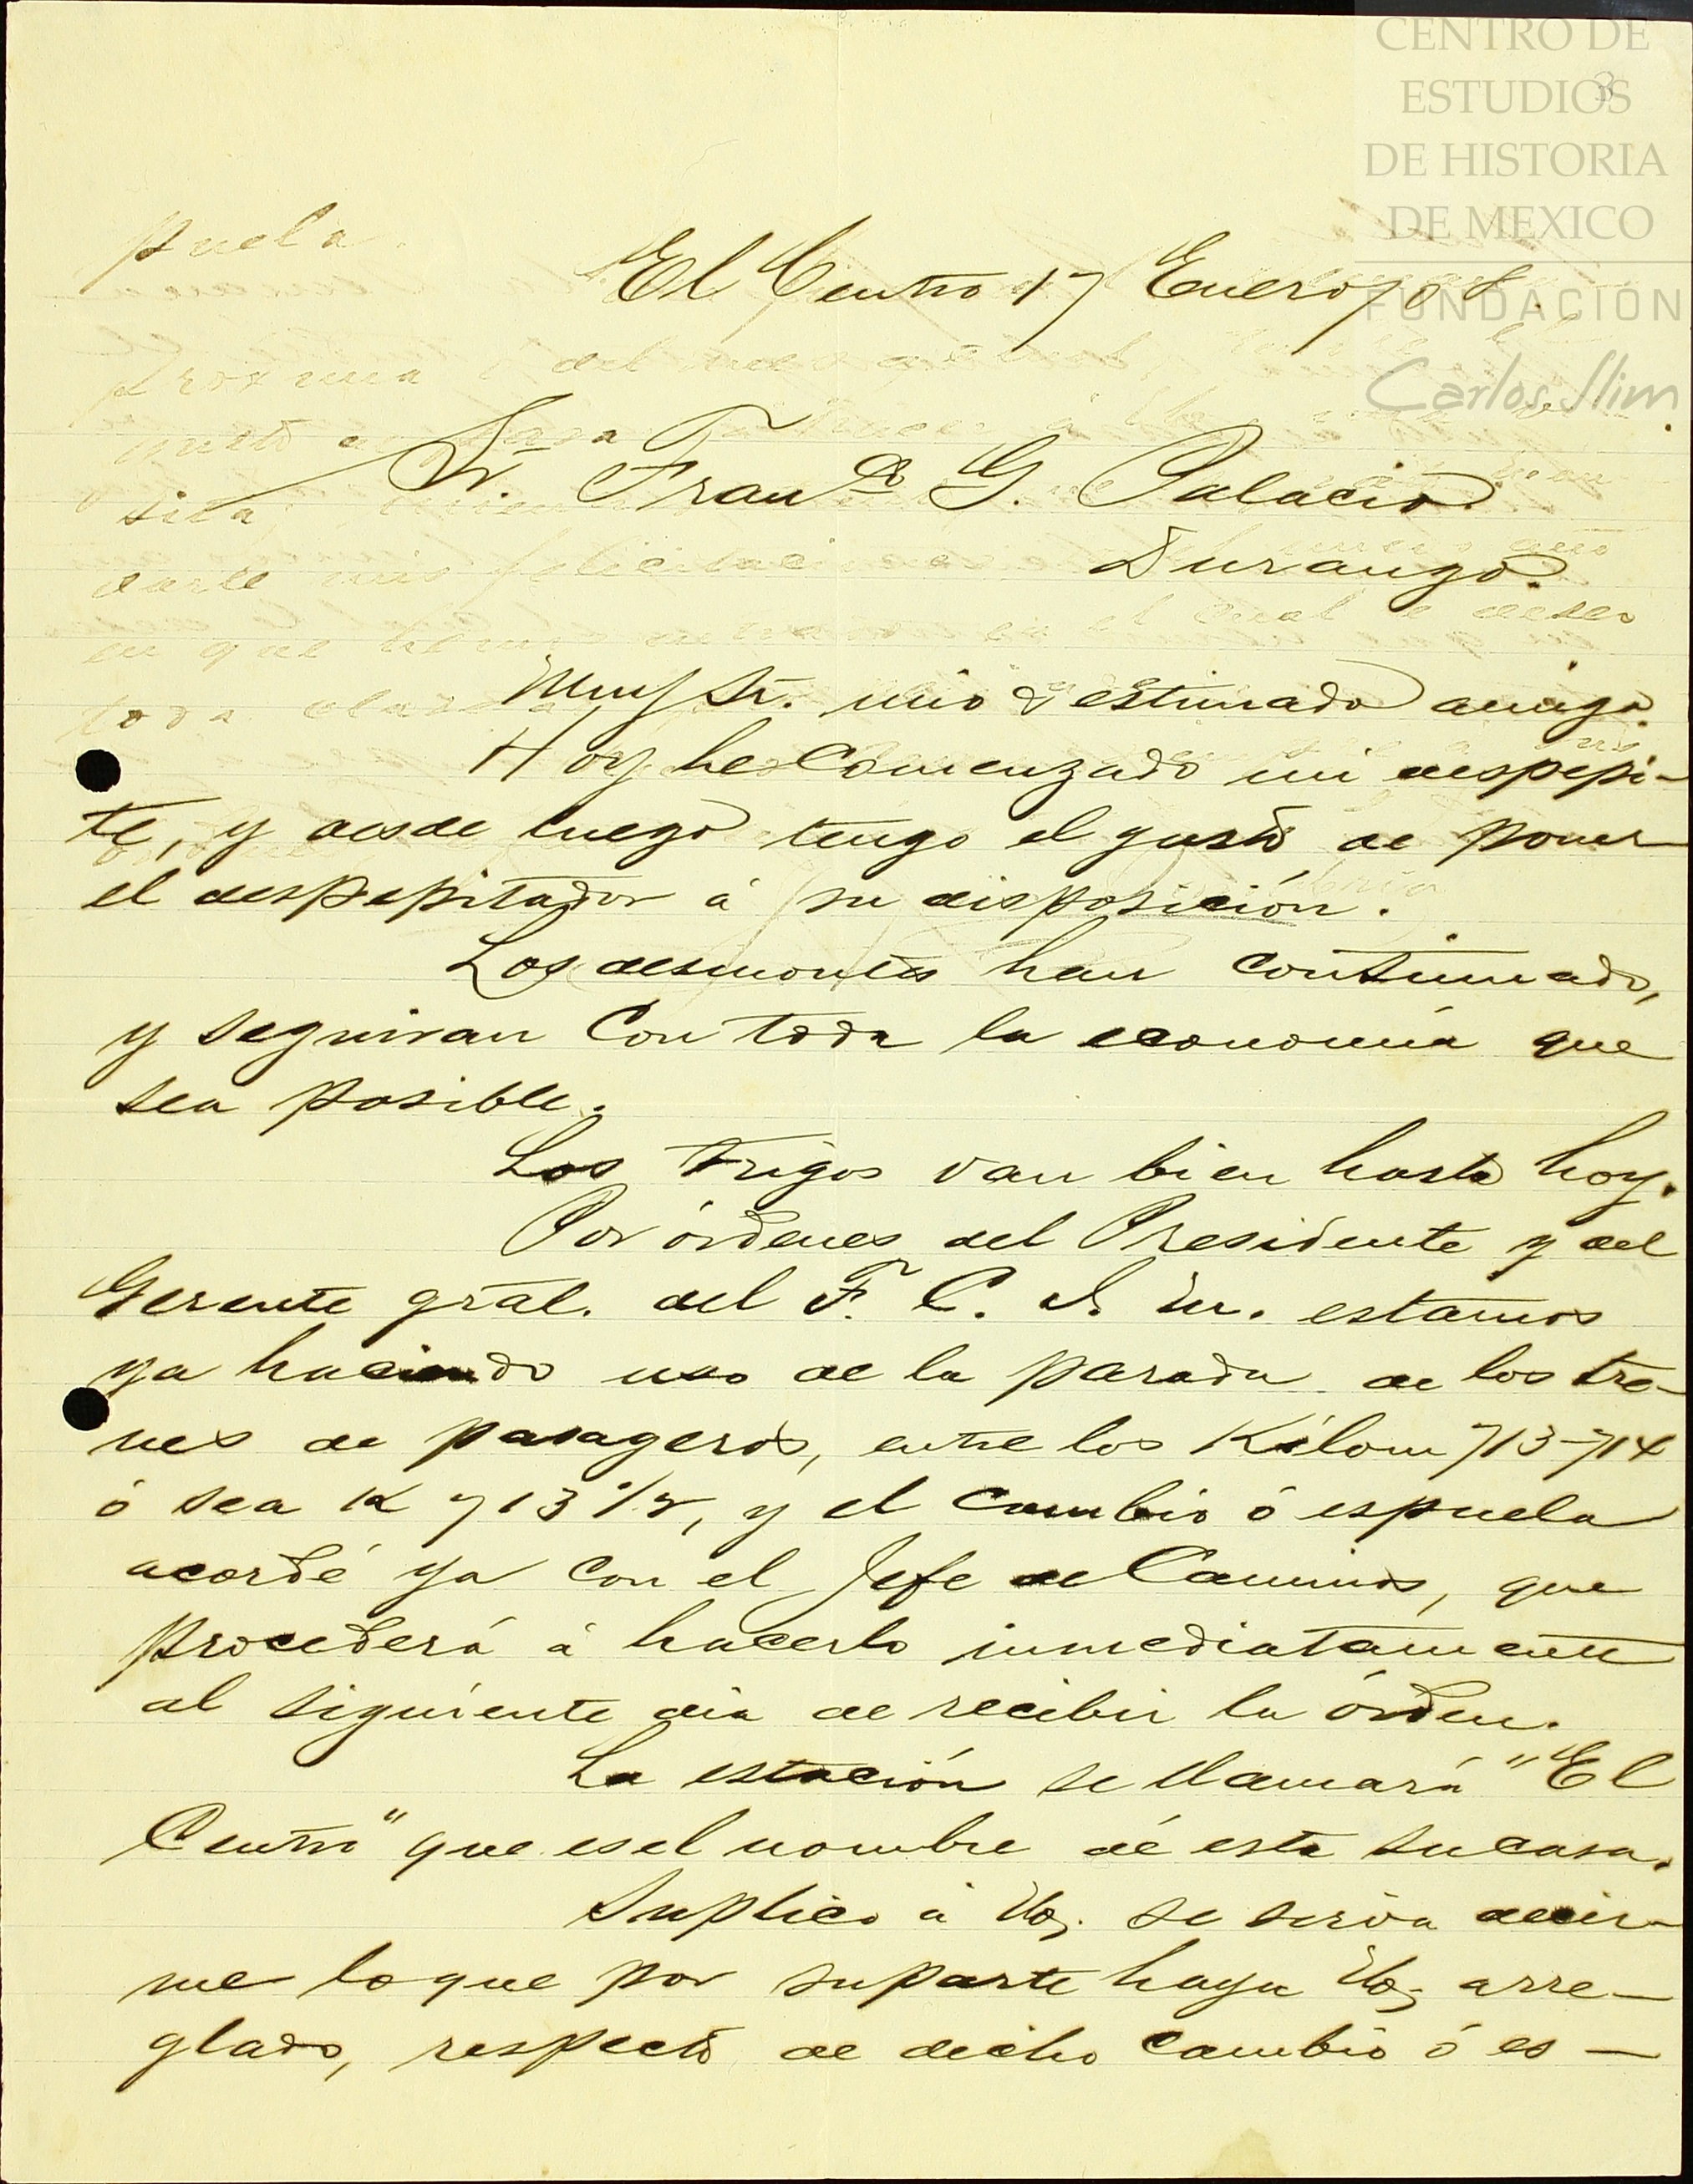 CENTRO DE
ESTUDIOS
DE HISTORIA
DE MEXICO
FUNDACIÓN
Carlos Slim
3
El Centro 17 Enero/08.
Sr. Franco G. Palacio.
Durango.
Muy Sr. mio & estimado amigo.
Hoy he Comenzado mi despepi-
te, y desde luego tengo el gusto de poner
el despepitador á su disposición.
Los desmontes han continuado,
y seguiran Con toda la economía que
sea posible.
Los trigos van bien hasta hoy.
Por órdenes del Presidente y del
Gerente gral. del F. C. I. M. estamos
ya haciendo uso de la parada de los tre-
nes de pasageros, entre los Kílom 713-714
ó sea K 713 1/2, y el cambio ó espuela
acordé ya con el Jefe de Caminos, que
procederá á hacerlo inmediatamente
al siguiente dia de recibir la órden.
La estación se llamará "El
Centro" que es el nombre de esta su casa.
Suplico á Ud. se sirva decir-
me lo que por su parte haya Ud. arre-
glado, respecto de dicho cambio ó es-
puela.